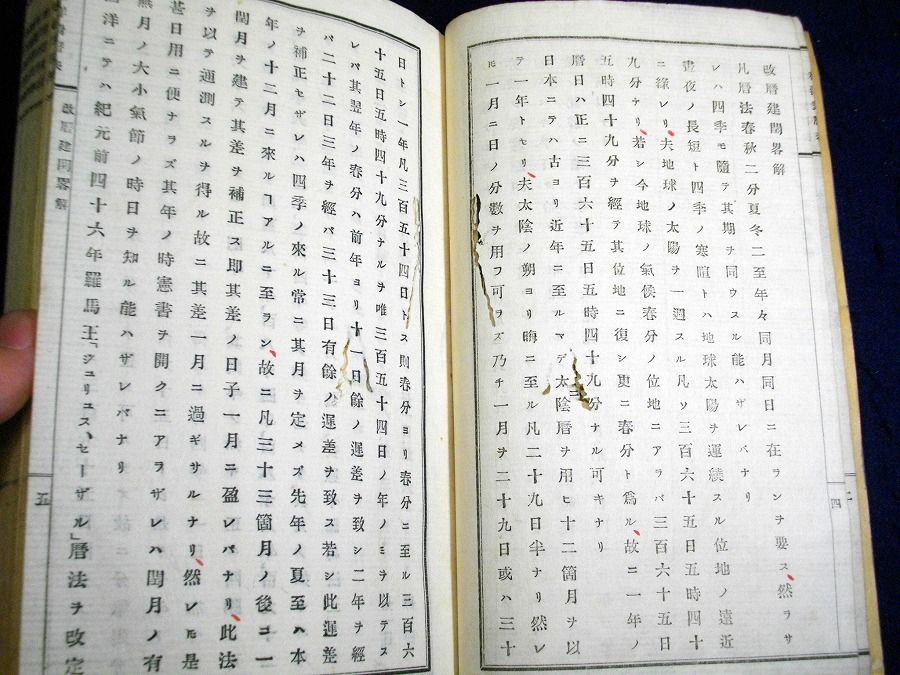 改暦建閏畧解
凡暦法春秋二分夏冬二至年々同月同日ニ在ランヲ要ス、然ラサ
レハ四季モ隨テ其期ヲ同ウスル能ハザレバナリ
晝夜ノ長短ト四季ノ寒暄トハ地球太陽ヲ運繞スル位地ノ遠近
ニ緣レリ、夫地球ノ太陽ヲ一週スル凡ソ三百六十五日五時四十
九分ナリ、若シ今地球ノ氣候春分ノ位地ニアラバ三百六十五日
五時四十九分ヲ經テ其位地ニ復シ更ニ春分ト爲ル、故ニ一年ノ
暦日ハ正ニ三百六十五日五時四十九分ナル可キナリ
日本ニテハ古ヨリ近年ニ至ルマデ太陰暦ヲ用ヒ十二箇月ヲ以
テ一年トセリ、夫太陰ノ朔ヨリ晦ニ至ル凡二十九日半ナリ然レ
𪜈一月ニ日ノ分數ヲ用フ可ラズ乃チ一月ヲ二十九日或ハ三十
四
日トシ一年凡三百五十四日トス則春分ヨリ春分ニ至ル三百六
十五日五時四十九分ナルヲ唯三百五十四日ノ年ノミヲ以テス
レバ其翌年ノ春分ハ前年ヨリ十一日餘ノ遲差ヲ致シ二年ヲ經
バ二十二日三年ヲ經バ三十三日有餘ノ遲差ヲ致ス若シ此遲差
ヲ補正セザレハ四季ノ來ル常ニ其月ヲ定メズ先年ノ夏至ハ本
年ノ十二月ニ來ルヿアルニ至ラン、故ニ凡三十三箇月ノ後ゴー
閏月ヲ建テ其差ヲ補正ス即其差ノ日子一月ニ盈レバナリ、此法
ヲ以テ運測スルヲ得ル故ニ其差一月ニ過ギサルナリ、然レ𪜈是
甚日用ニ便ナラズ其年ノ時憲書ヲ開クニアラザレハ閏月ノ有
無月ノ大小氣節ノ時日ヲ知ル能ハザレバナリ
西洋ニテハ紀元前四十六年羅馬王「ジュリュス、セーザル」暦法ヲ改定
改暦建閏畧解
五